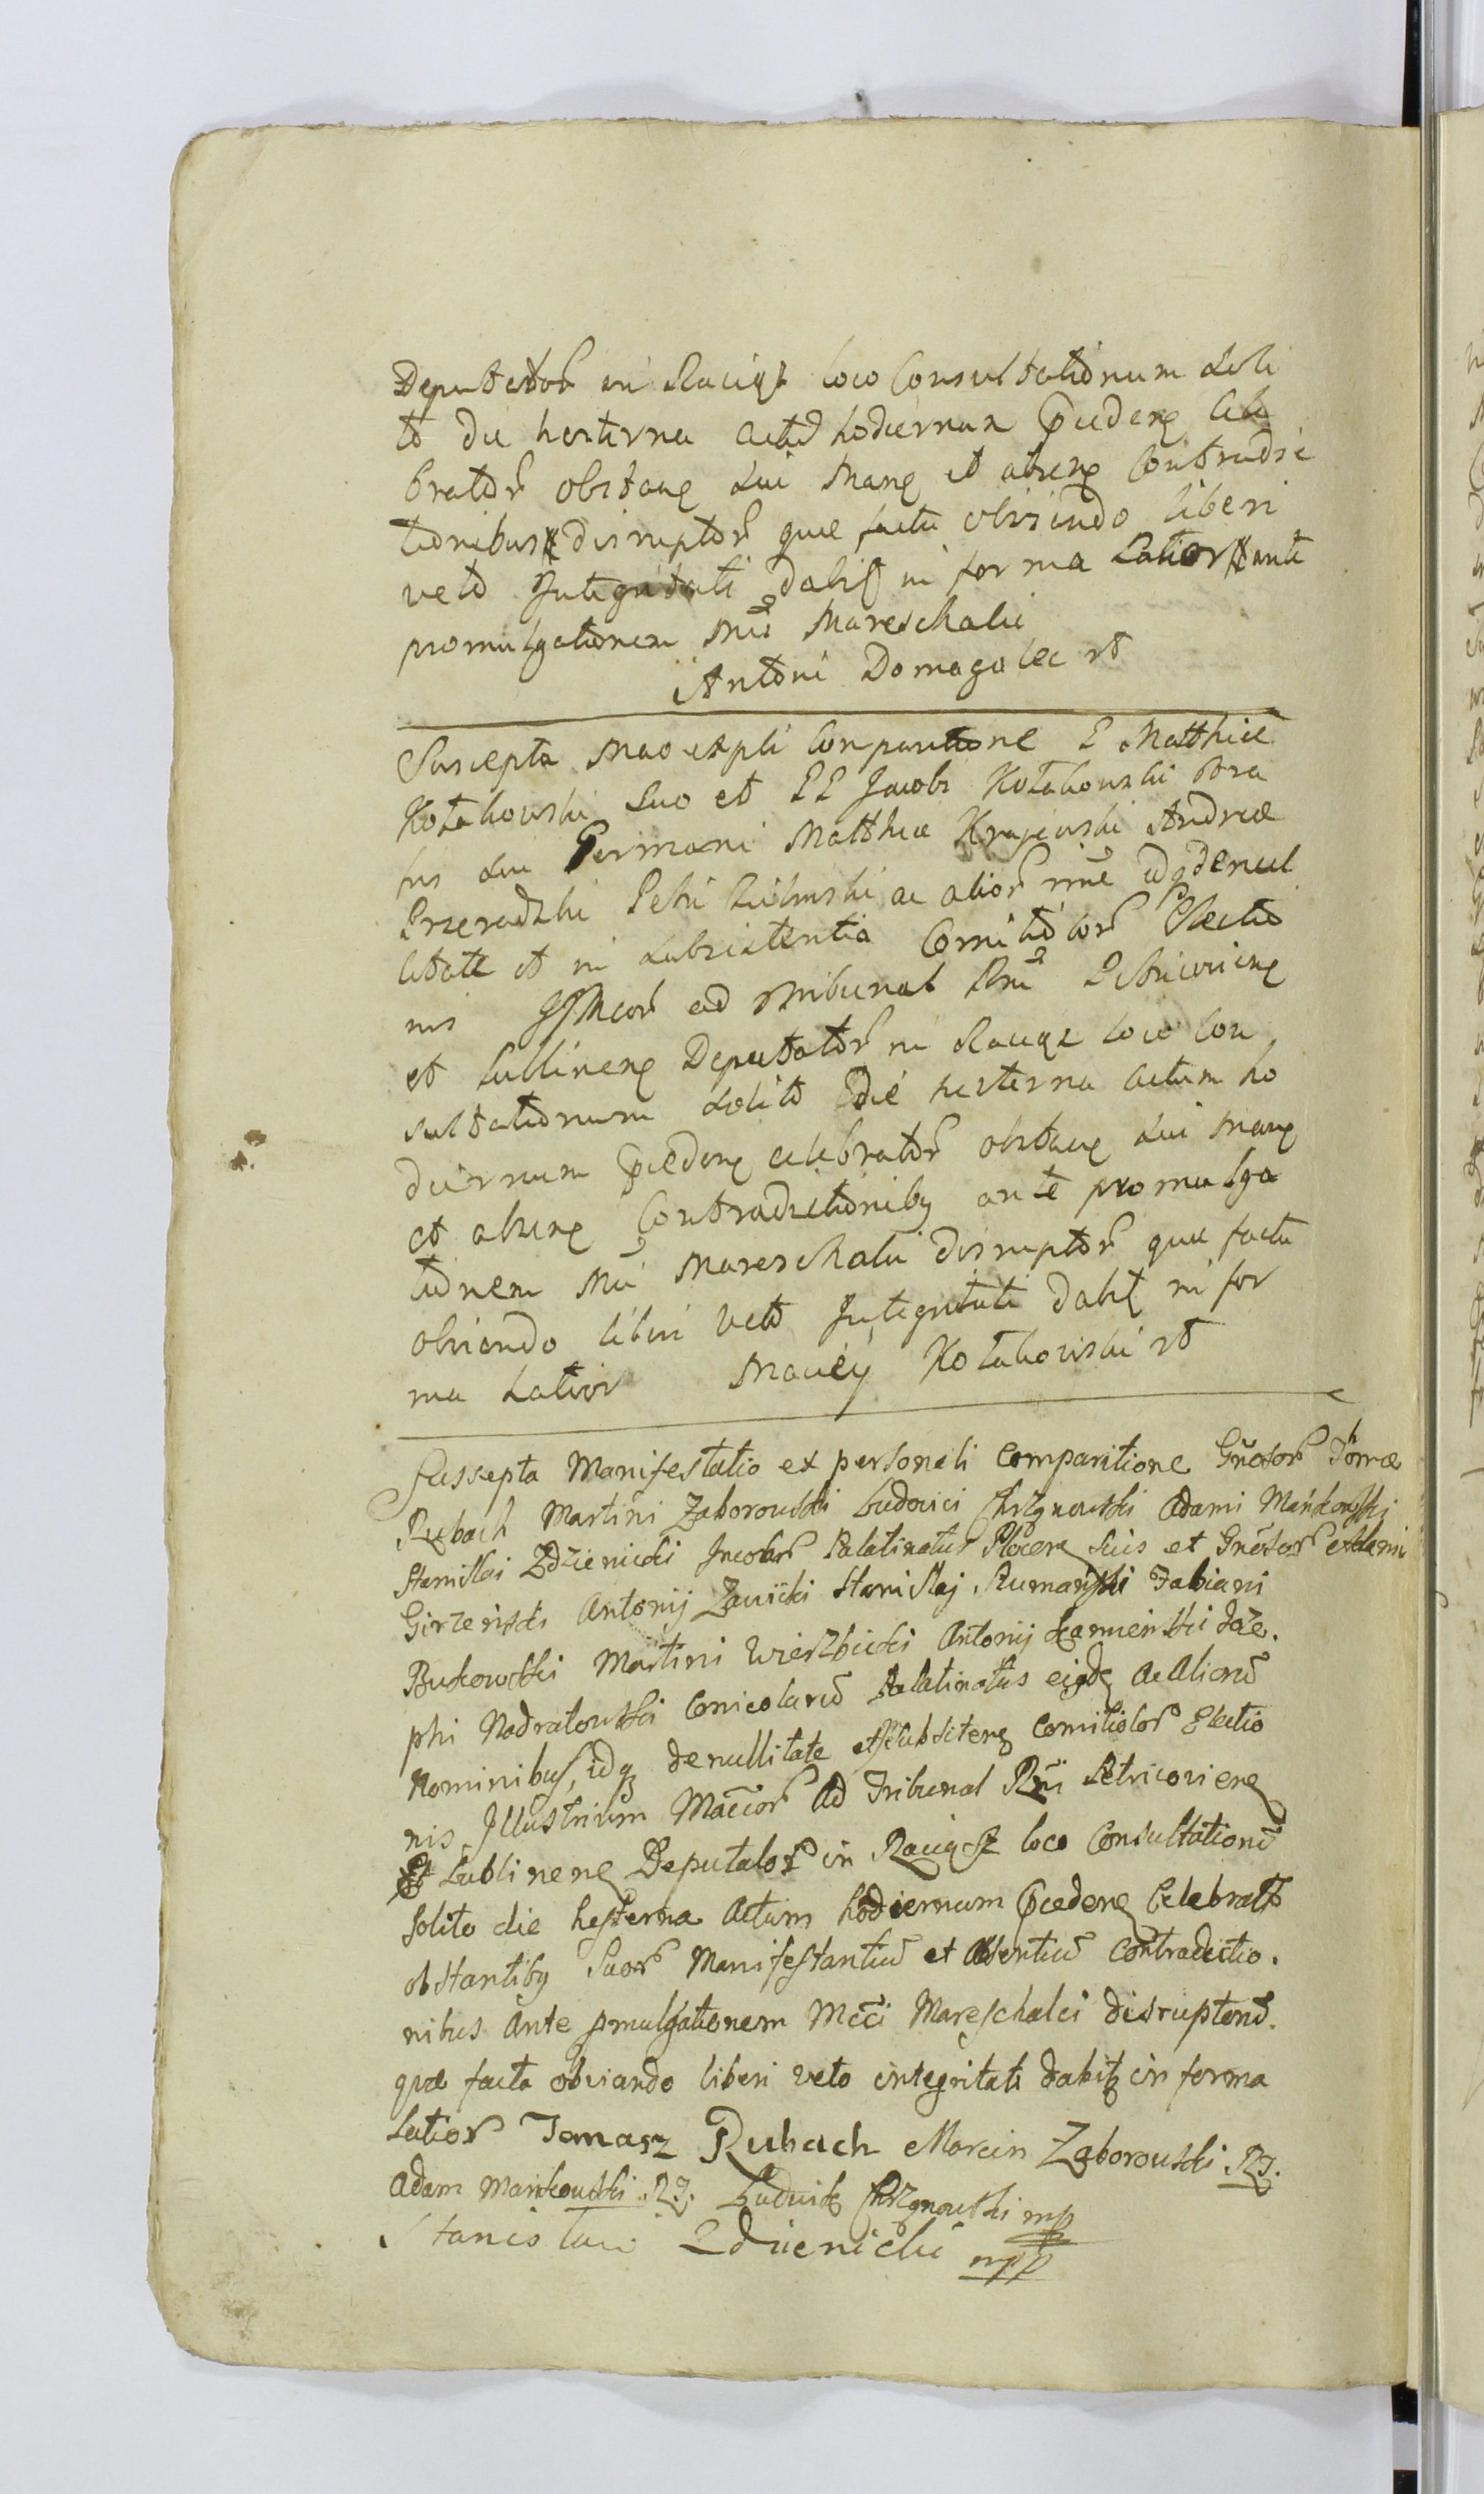 Deputator in Raciąż loco Consultationum soli
to die hesterna actum hodiernum pcedenq Cele
brator obstanq sui Manq et absenq Contradic
tionibus disruptor quae facta obviando liberi
veto Integritati dabit in forma Latior ante
promulgationem Mci Mareschalci
Antoni Domagalec
Suscepta Mao ex pli Comparitione G Matthiae
Kołakowski suo et GG Jacobi Kołakowski Fra
tris sui Germani Matthiae Krajewski Andreae
Przeradzki Petri Zielinski ac alior nne idq de nul
litate et in subsistentia Comitiolor Electio
nis Illr Mcor ad Tribunal Rni Petricovienq
et Lublinenq Deputator in Raciąż loco Con
sultationum solito die hesterna actum ho
diernum pcedenq celebrator obstanq sui Manq
et absenq Contradictioniby ante promulga
tionem Mci Mareschalci disruptor quae facta
obviando liberi veto Integritati dabit in for
ma Latior Maciey Kołakowski
Suscepta Manifestatio ex personali Comparitione Gnosor Tomae
Rubach Martini Zaborowski Ludovici Chrzanowski Adami Mańkowski
Stanislai Zdzienicki Incolar Palatinatus Plocenq suis et Gnosor Adami
Girzeński Antonij Zawicki Stanislaj Szumański Fabiani
Bukowski Martini Wierzbicki Antonij Kamienski Joze.
phi Nadratowski Conicolarum Palatinatus ejqdq Ac Aliorum
Nominibus, idq de nullitate et subsitenq Comitiolor Electio
nis Illustrium Maccor Ad Tribunal Rni Petricovienq
Et Lublinenq Deputator in Raciąsz loco Consultationum
solito die hesterna Actum hodiernum pcedenq Celebrator
obstantiby suor Manifestantium et Absentium Contradictio.
nibus Ante pmulgationem Mcci Mareschalci disruptorum.
quae facta obviando liberi veto integritati dabit in forma
Latior Tomasz Rubach Marcin Zaborowski RJ.
Adam Mańkowski RJ. Ludwik Chrzanowski mp
Stanisław Zdzienicki mpp